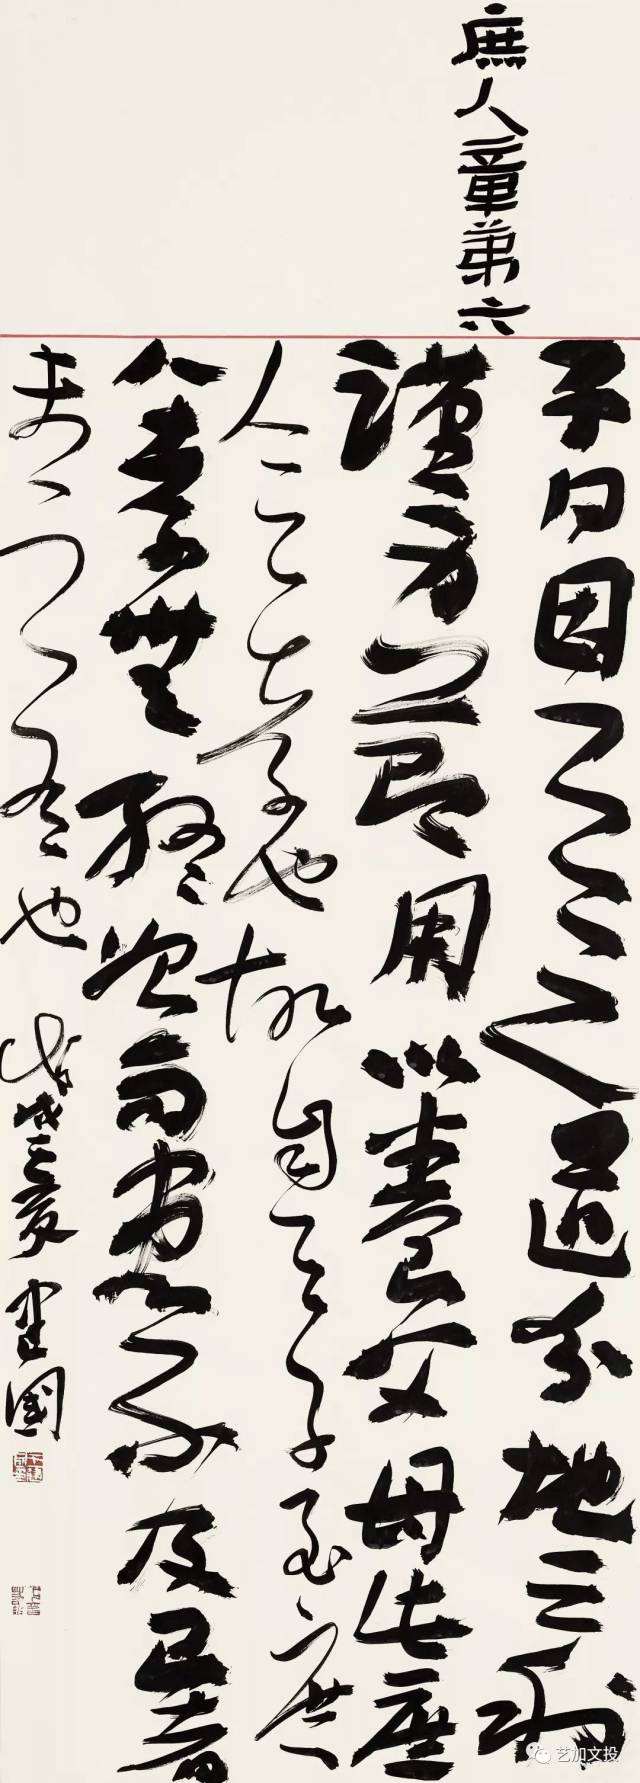 庶人章第六
子曰因天之道分地之利
謹身節用以養父母此庶
人之孝也故自天子至庶
人孝無終始而患不及己者
未之有也 戊戌之夏 建國
艺加文投